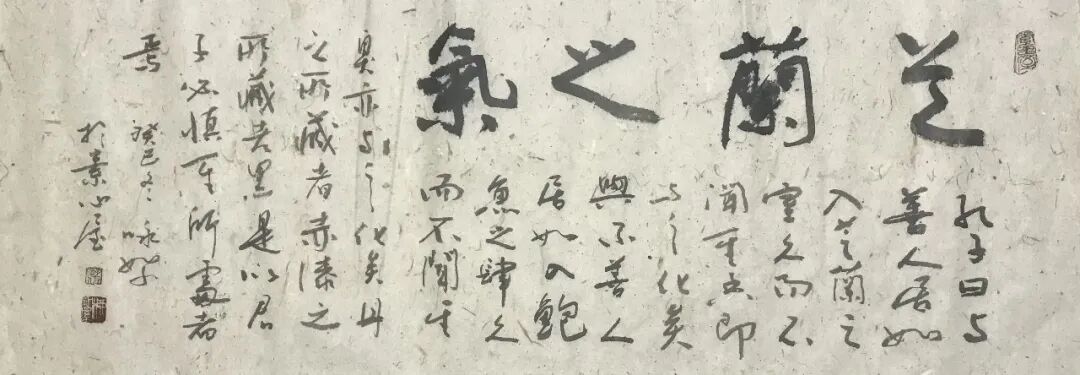 芝蘭之氣
孔子曰与
善人居如
入芝蘭之
室久而不
聞其香即
与之化矣
與不善人
居如入鮑
魚之肆久
而不聞其
臭亦与之化矣丹
之所藏者赤漆之
所藏者黑是以君
子必慎其所處者
焉
癸巳冬 咏
於景心屋